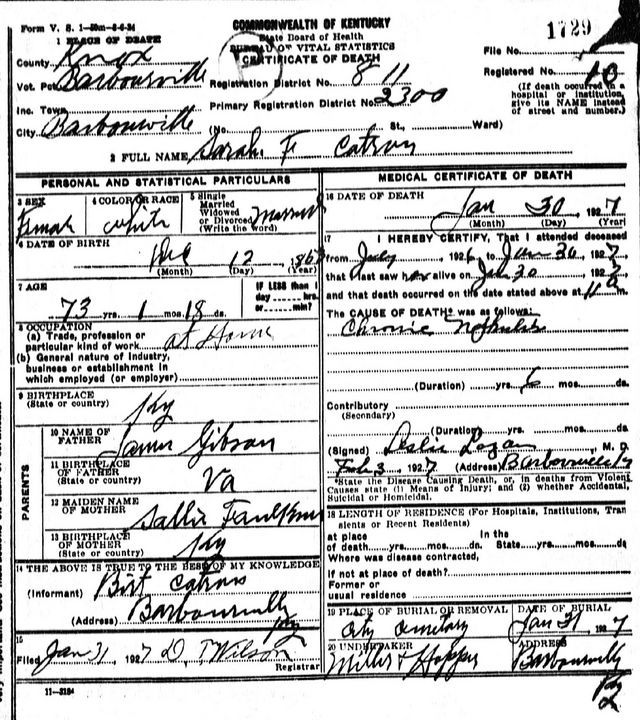 Form V. S. 1-50m-8-6-24
COMMONWEALTH OF KENTUCKY
State Board of Health
BUREAU OF VITAL STATISTICS
CERTIFICATE OF DEATH
1729
1 PLACE OF DEATH
County Knox
File No.
Vot. Pct Barbourville
Registration District No. 811
Registered No. 10
Inc. Town
Primary Registration District No. 2300
(If death occurred in a hospital or institution, give its NAME instead of street and number.)
City Barbourville (No. St., Ward)
2 FULL NAME Sarah F Catron
PERSONAL AND STATISTICAL PARTICULARS
3 SEX Female
4 COLOR OR RACE white
5 Single Married Widowed or Divorced (Write the word) Married
6 DATE OF BIRTH
Dec 12 186
(Month) (Day) (Year)
7 AGE
73 yrs. 1 mos. 18 ds.
IF LESS than 1 day hrs. or min?
8 OCCUPATION
(a) Trade, profession or particular kind of work at Home
(b) General nature of industry, business or establishment in which employed (or employer)
9 BIRTHPLACE
(State or country) Ky
PARENTS
10 NAME OF FATHER James Gibson
11 BIRTHPLACE OF FATHER
(State or country) Va
12 MAIDEN NAME OF MOTHER Sallie Faulkner
13 BIRTHPLACE OF MOTHER
(State or country) Ky
14 THE ABOVE IS TRUE TO THE BEST OF MY KNOWLEDGE
(Informant) Birt Catron
(Address) Barbourville Ky
15
Filed Jan 31 1927 D. T Wilson
Registrar
11-3184
MEDICAL CERTIFICATE OF DEATH
16 DATE OF DEATH Jan 30 1927
(Month) (Day) (Year)
17 I HEREBY CERTIFY, That I attended deceased
from July 1926, to Jan 30, 1927
that I last saw her alive on Jan 30 1927
and that death occurred on the date stated above at 11 a
The CAUSE OF DEATH* was as follows:
Chronic Nephritis
(Duration) yrs. 6 mos. ds.
Contributory
(Secondary)
(Duration) yrs. mos. ds.
(Signed) Leslie Logan, M. D.
Feb 3, 1927 (Address) Barbourville Ky
*State the Disease Causing Death, or, in deaths from Violent Causes state (1) Means of Injury; and (2) whether Accidental, Suicidal or Homicidal.
18 LENGTH OF RESIDENCE (For Hospitals, Institutions, Transients or Recent Residents)
at place of death yrs. mos. ds. In the State yrs. mos. ds
Where was disease contracted,
If not at place of death?
Former or usual residence
19 PLACE OF BURIAL OR REMOVAL
City Cemetary
DATE OF BURIAL
Jan 31 1927
20 UNDERTAKER
Miller & Hopper
ADDRESS
Barbourville Ky